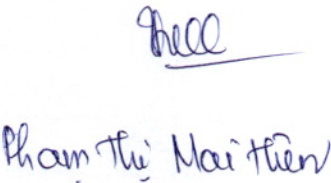 Phạm Thị Mai Hiên